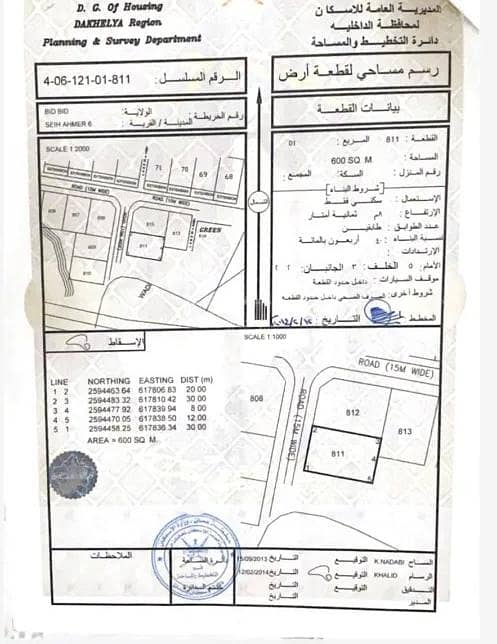 D. G. Of Housing
DAKHELYA Region
Planning & Survey Department
المديرية العامة للاسكان
لمحافظة الداخلية
دائرة التخطيط والمساحة
4-06-121-01-811 الرقم المسلسل :
رسم مساحي لقطعة أرض
BID BID الولاية:
SEIH AHMER 6 المدينة / القرية : رقم الخريطة:
بيانات القطعة
القطعة: 811 المربع: 01
المساحة: 600 SQ. M
رقم المنزل: السكة: المجتمع:
[شروط البناء]
الإستعمال: سكني فقط
الإرتفاع: ٨م ثمانية أمتار
عدد الطوابق: طابقين
نسبة البناء: ٤٠ أربعون بالمائة
الإرتدادات
الأمام: ٥ الخلف: ٣ الجانبان: ٢ ٢
موقف السيارات: داخل حدود القطعة
شروط أخرى: الصرف الصحي داخل حدود القطعة
المخطط التاريخ:
SCALE 1:2000
71
70
69
68
ROAD (15M WIDE)
ROAD (15M WIDE)
GREEN
811
WADI
الشمال
الإسقاط
SCALE 1:1000
LINE NORTHING EASTING DIST (m)
1 2 2594463.64 617806.83 20.00
2 3 2594483.32 617810.42 30.00
3 4 2594477.92 617839.94 8.00
4 5 2594470.05 617838.50 12.00
5 1 2594458.25 617836.34 30.00
AREA = 600 SQ. M.
ROAD (15M WIDE)
ROAD (15M WIDE)
808
812
813
811
1
2
3
4
5
الملاحظات
15/09/2013 التاريخ التوقيع K.NADABI المساح
12/02/2014 التاريخ التوقيع KHALID الرسام
التاريخ التوقيع التدقيق
التاريخ المدير